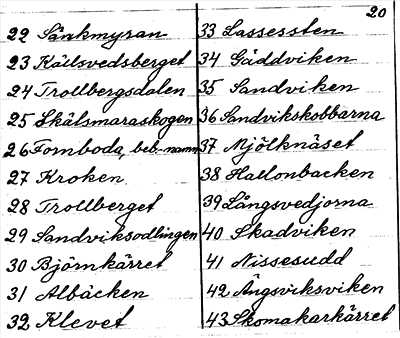 20
22 Sänkmyran
23 Källsvedsberget
24 Trollbergsdalen
25 Skålsmaraskogen
26 Fornboda, beb.-namn
27 Kroken
28 Trollberget
29 Sandviksodlingen
30 Björnkärret
31 Albäcken
32 Klevet
33 Lassessten
34 Gäddviken
35 Sandviken
36 Sandvikskobbarna
37 Mjölknäset
38 Hallonbacken
39 Långsvedjorna
40 Skadviken
41 Nissesudd
42 Ängsviksviken
43 Skomakarkärret